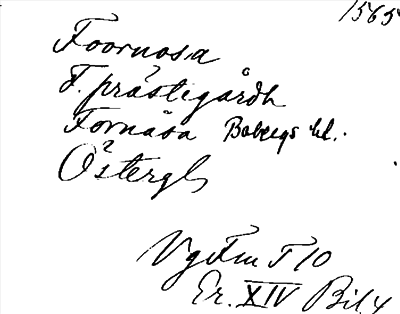 1565
Foornosa
F. prästegårdh
Fornåsa Bobergs hd.
Östergl
Vg Fm T 10
Er. XIV Bil 4